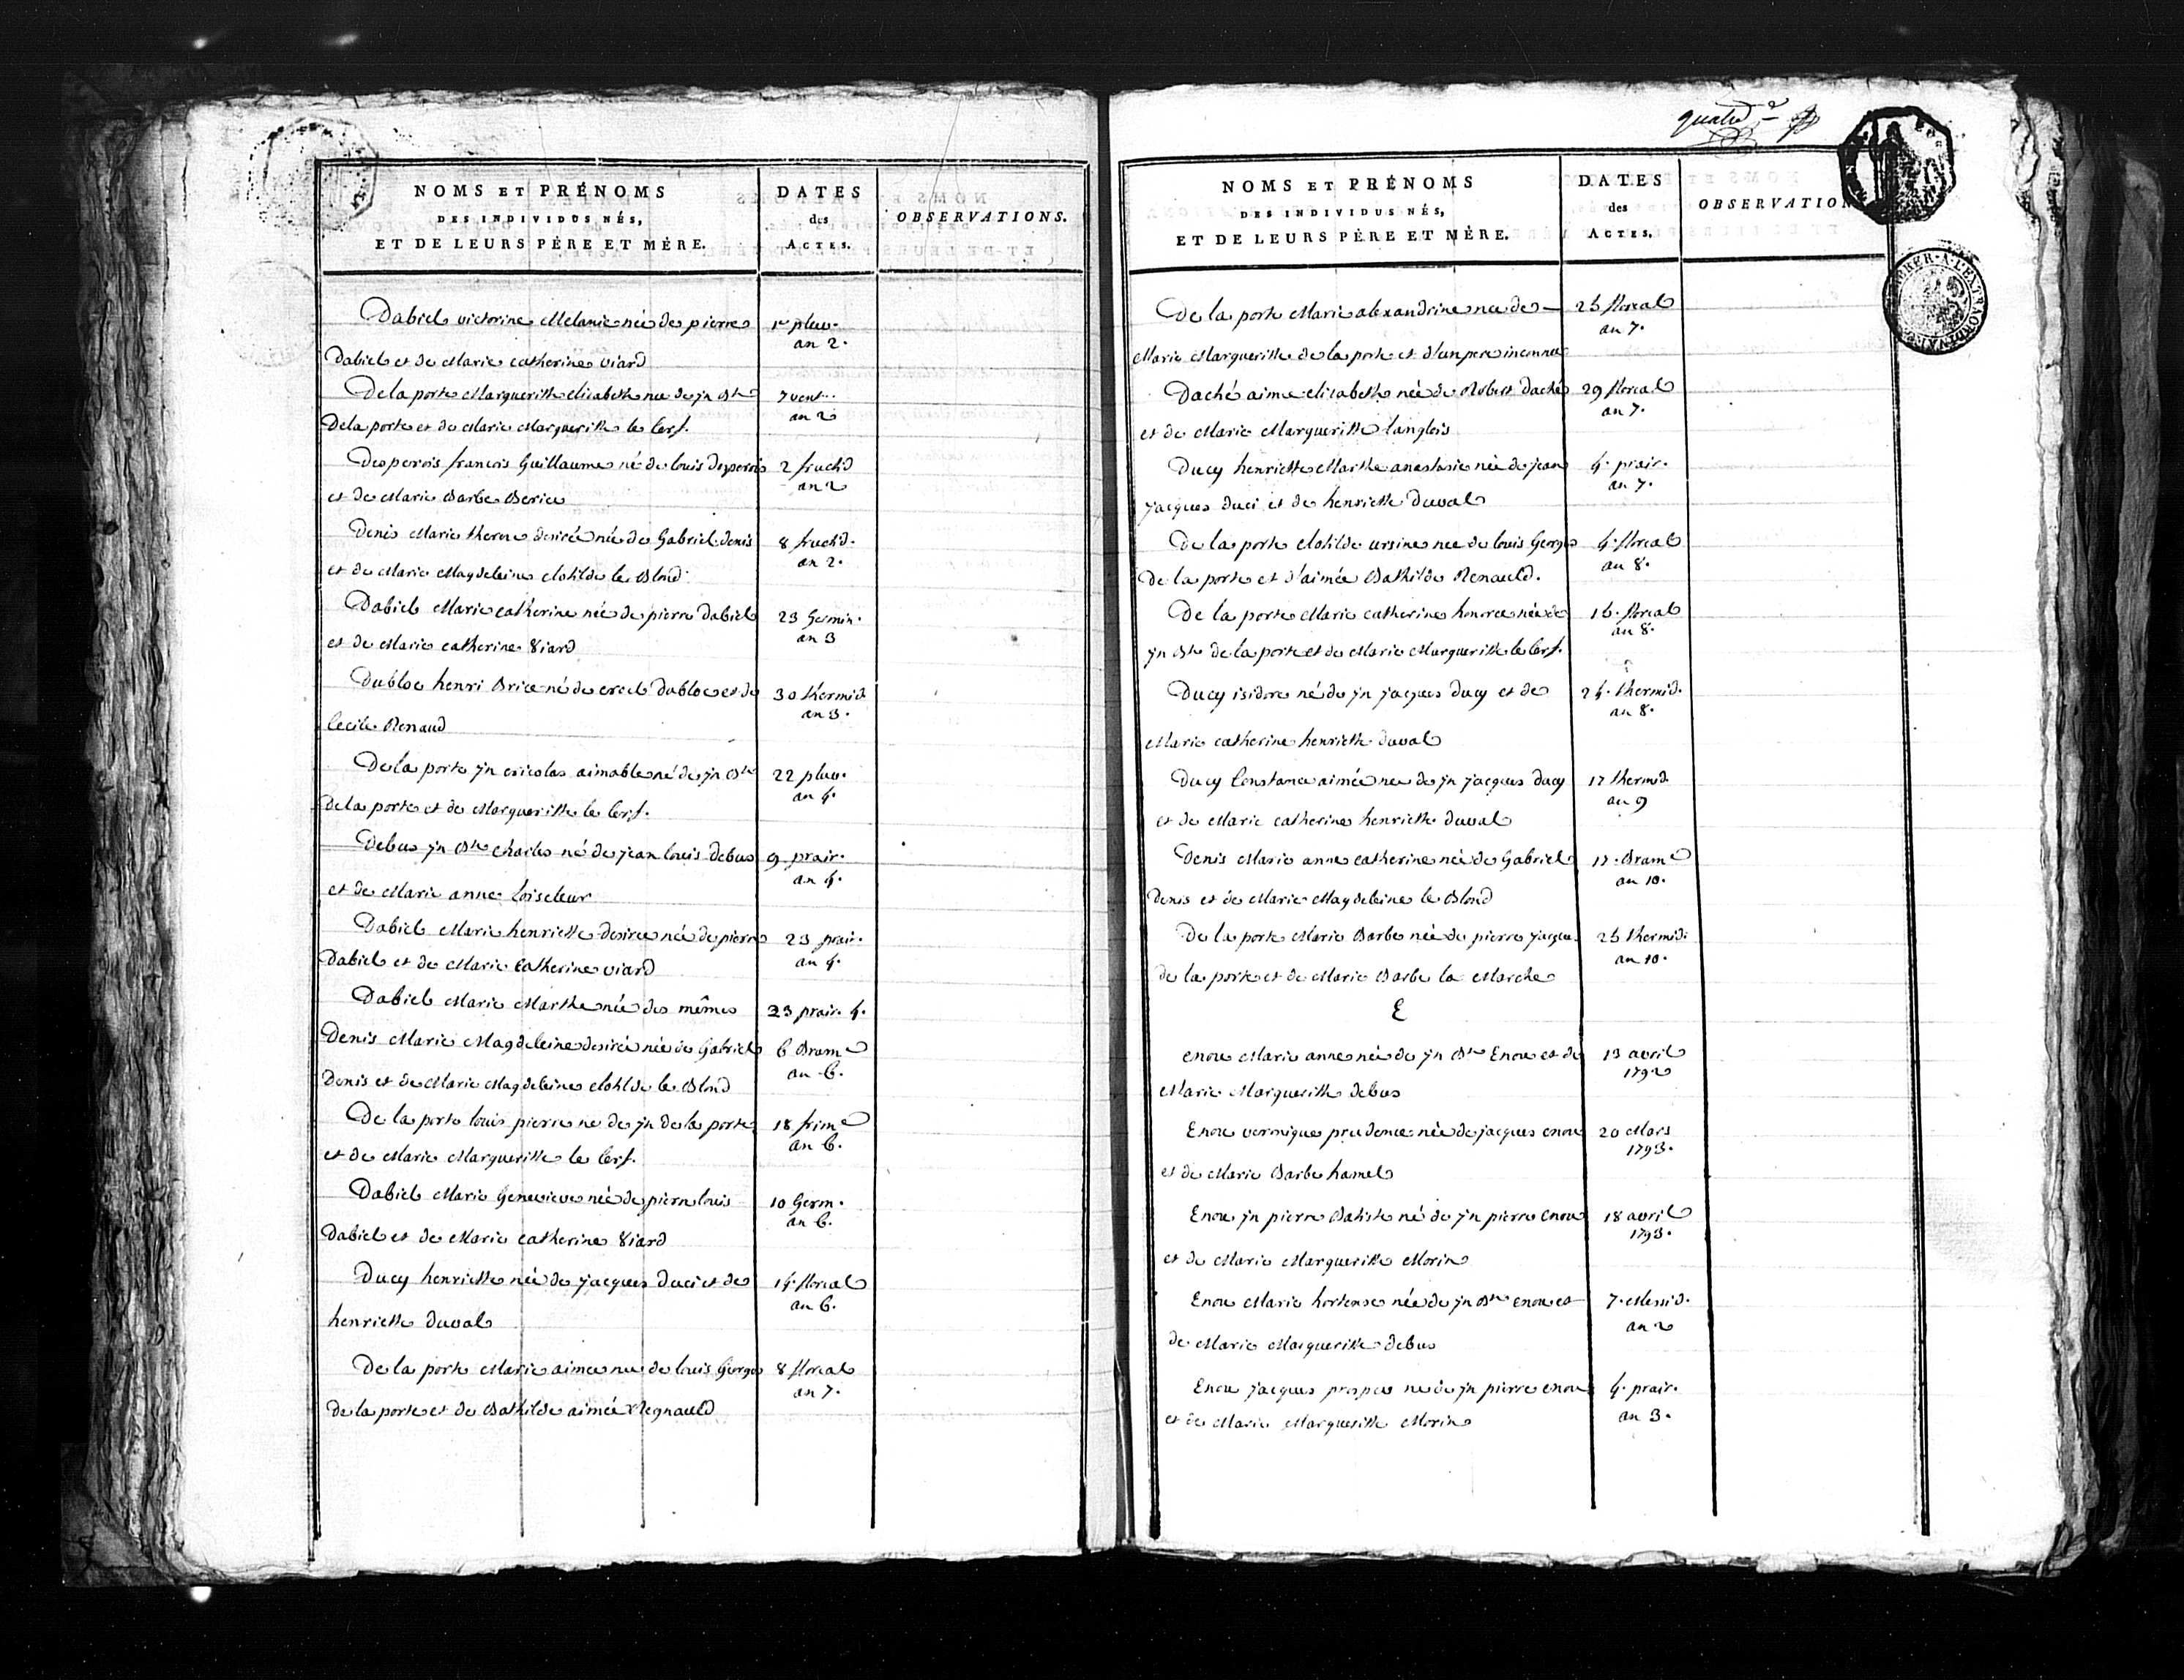 NOMS ET PRÉNOMS
DES INDIVIDUS NÉS,
ET DE LEURS PÈRE ET MÈRE.
DATES
des
ACTES.
OBSERVATIONS.
Dabiel victorine Melanie née de pierre 1er pluv. an 2.
Dabiel et de Marie catherine viard
De la porte Margueritte elizabeth nee de jn Bte 7 vent. an 2
Dela porte et de Marie Margueritte le Cerf.
Desperois francois Guillaume né de louis desperois 2 fruct.d an 2
et de Marie Barbe Berice
Denis Marie therese desirée née de Gabriel denis 8 fruct.d an 2.
et de Marie Magdeleine clotilde le Blond
Dabiel Marie catherine née de pierre Dabiel 23 Germin. an 3
et de Marie catherine Viard
Dubloc henri Brice né de Dubloc et de 30 thermid. an 3.
Cecile Renaud
De la porte jn nicolas aimable né de jn Bte 22 pluv. an 4.
De la porte et de Margueritte le Cerf.
Debus jn Bte charles né de jean louis debus 9 prair. an 4.
et de Marie anne loiseleur
Dabiel Marie henriette desiree née de pierre 23 prair. an 4.
Dabiel et de Marie Catherine viard
Dabiel Marie Marthe née des mêmes 23 prair. 4.
Denis Marie Magdeleine desirée née de Gabriel 6 Brum.e an 6.
Denis et de Marie Magdeleine clotilde le Blond
De la porte louis pierre ne de jn de la porte 18 frim.e an 6.
et de Marie Margueritte le Cerf.
Dabiel Marie Genevieve née de pierre louis 10 Germ. an 6.
Dabiel et de Marie catherine Viard
Ducy henriette née de jacques duci et de 14. floreal an 6.
henriette duval
De la porte Marie aimee nee de louis George 8 floreal an 7.
de la porte et de Bathilde aimée Regnauld
NOMS ET PRÉNOMS
DES INDIVIDUS NÉS,
ET DE LEURS PÈRE ET MÈRE.
DATES
des
ACTES.
OBSERVATION
De la porte Marie alexandrine nee de – 25 floreal an 7.
Marie Margueritte de la porte et d'un pere inconnu
Daché aime elizabeth née de Robert daché 29 floreal an 7.
et de Marie Margueritte langlois
Ducy henriette Marthe anastasie née de jean 4. prair. an 7.
jacques duci et de henriette duval
De la porte clotilde ursine nee de louis George 4. floreal an 8.
De la porte et d'aimée Bathilde Renauld.
De la porte Marie catherine honoree née de 15. floreal an 8.
jn Bte de la porte et de Marie Margueritte le Cerf.
Ducy isidore né de jn jacques ducy et de 24. thermid. an 8.
Marie catherine henriette duval
Ducy Constance aimée nee de jn jacques ducy 17 thermid. an 9
et de Marie catherine henriette duval
Denis Marie anne catherine née de Gabriel 17. Brum.e an 10.
Denis et de Marie Magdeleine le Blond
De la porte Marie Barbe née de pierre jacques 25 thermid. an 10.
de la porte et de Marie Barbe la Marche
E
enou Marie anne née de jn Bte Enou et de 13 avril 1792
Marie Margueritte debus
Enou veronique prudence née de jacques enou 20 Mars 1793.
et de Marie Barbe hamel
Enou jn pierre Batiste né de jn pierre enou 18 avril 1793.
et de Marie Margueritte Morin
Enou Marie hortense née de jn Bte enou et 7. Messid. an 2
de Marie Margueritte debus
Enou jacques prosper né de jn pierre enou 4. prair. an 3.
et de Marie Margueritte Morin